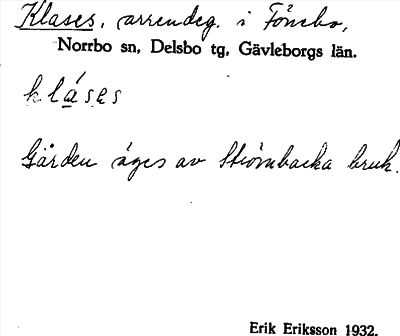 Klases, arrendeg. i Fönebo,
Norrbo sn, Delsbo tg, Gävleborgs län.
kláses
Gården äges av Strömbacka bruk.
Erik Eriksson 1932.